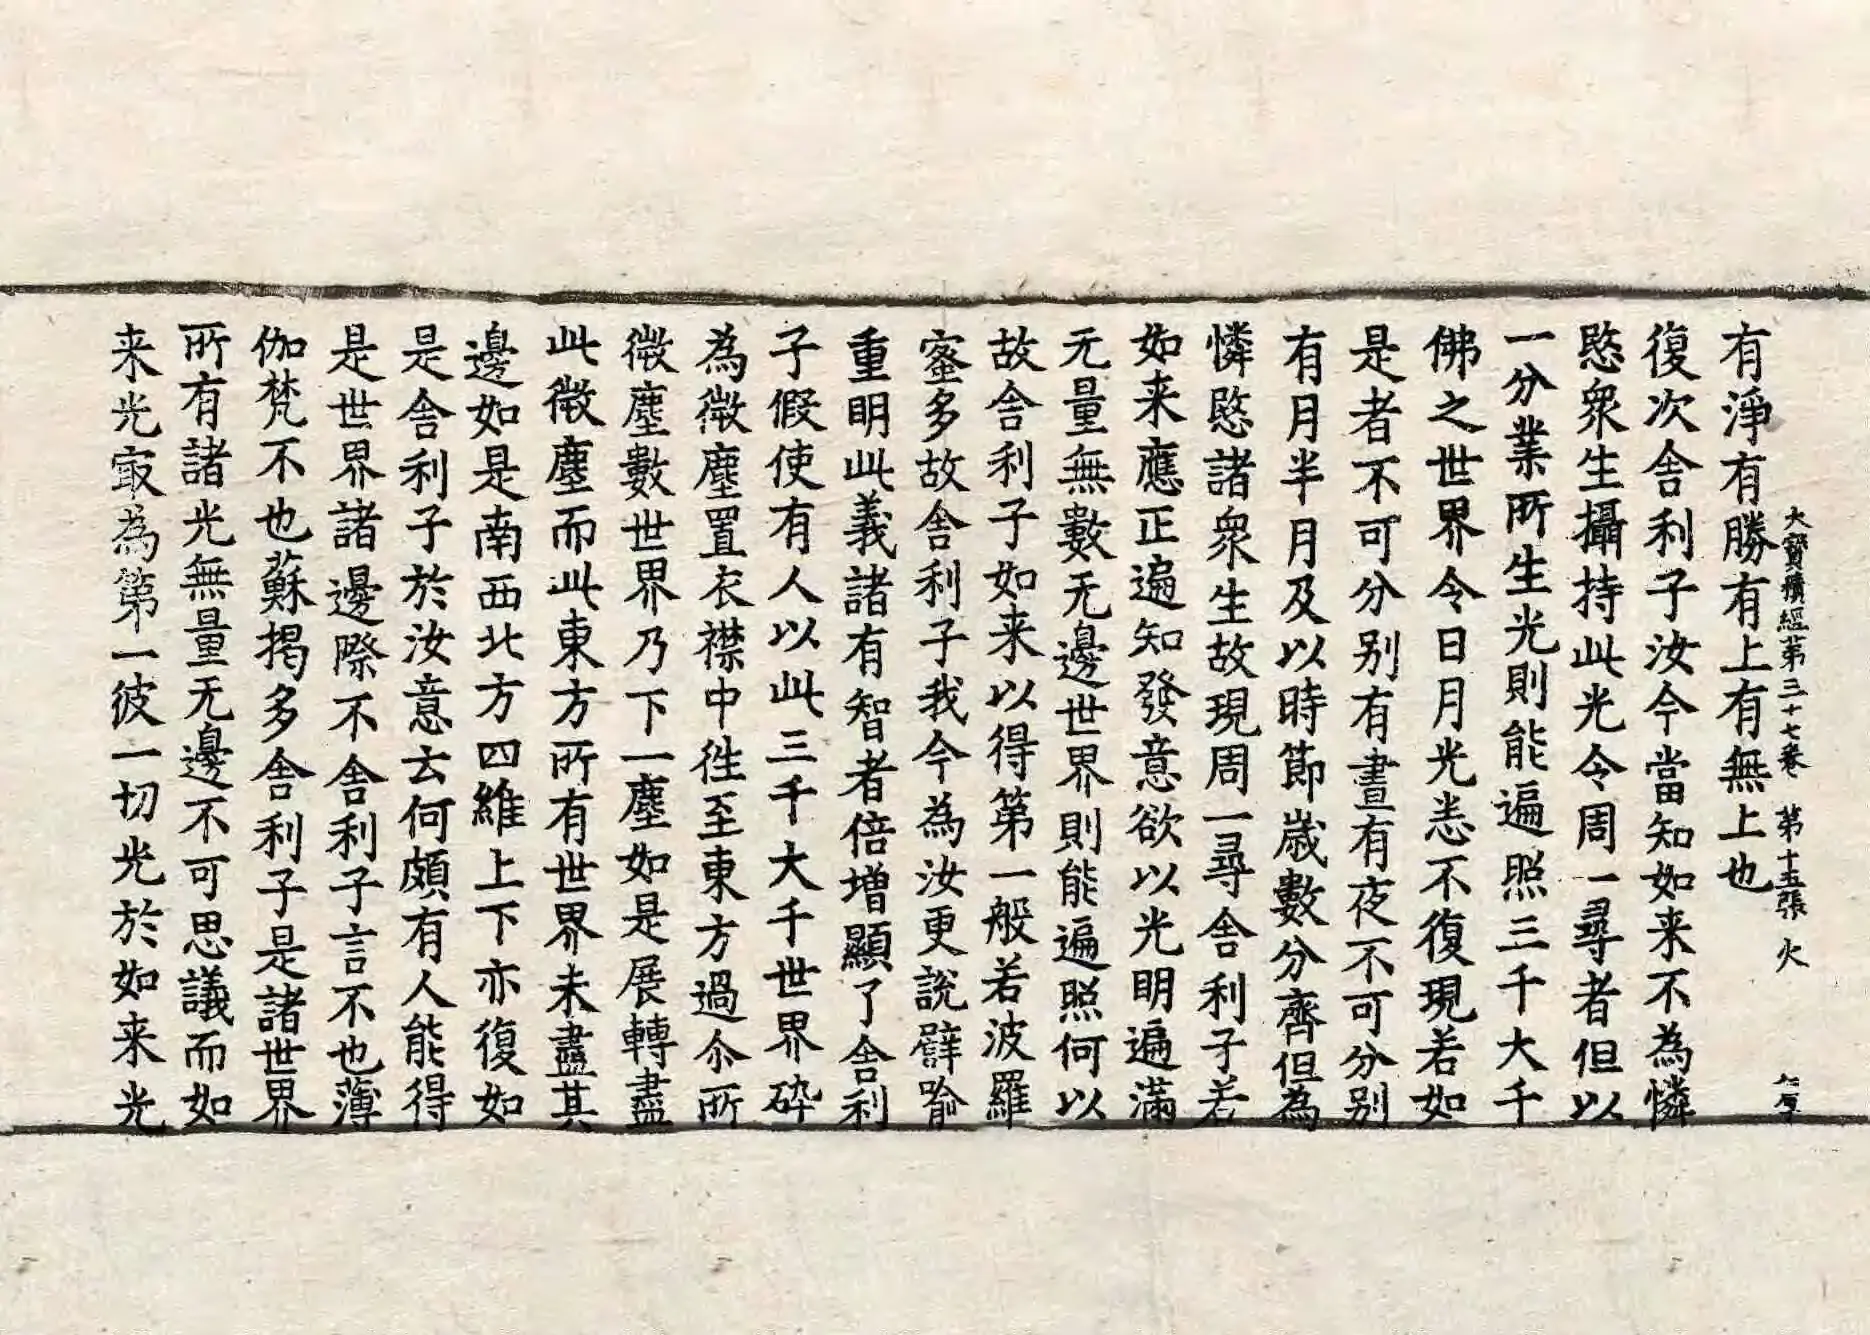 大寶積經第三十七卷 第十五張 火
有淨有勝有上有無上也
復次舍利子汝今當知如来不為憐
愍衆生攝持此光令周一尋者但以
一分業所生光則能遍照三千大千
佛之世界令日月光恙不復現若如
是者不可分别有晝有夜不可分别
有月半月及以時節歲數分齊但為
憐愍諸衆生故現周一尋舍利子若
如来應正遍知發意欲以光明遍滿
无量無數无邊世界則能遍照何以
故舍利子如来以得第一般若波羅
蜜多故舍利子我今為汝更說譬喻
重明此義諸有智者倍增顯了舍利
子假使有人以此三千大千世界碎
為微塵置衣襟中徃至東方過尒所
微塵數世界乃下一塵如是展轉盡
此微塵而此東方所有世界未盡其
邊如是南西北方四維上下亦復如
是舍利子於汝意云何頗有人能得
是世界諸邊際不舍利子言不也薄
伽梵不也蘇揭多舍利子是諸世界
所有諸光無量无邊不可思議而如
来光㝡為第一彼一切光於如来光